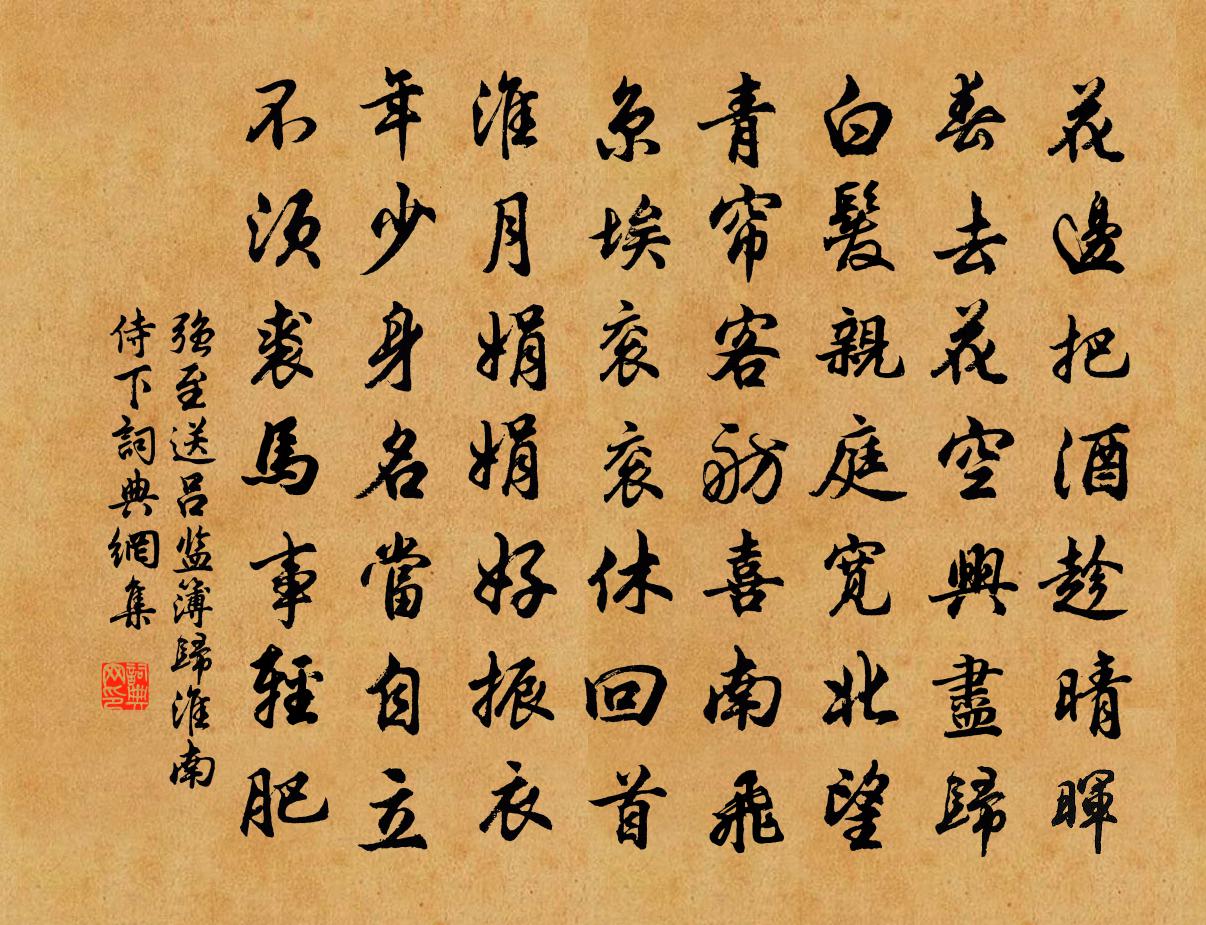 花邊把酒趁晴暉
春去花空興盡歸
白髮親庭寬北望
青帘客舫喜南飛
京埃衮衮休回首
淮月娟娟好振衣
年少身名當自立
不須裘馬事輕肥
強至送呂監簿歸淮南
侍下詞典網集
詞典网印